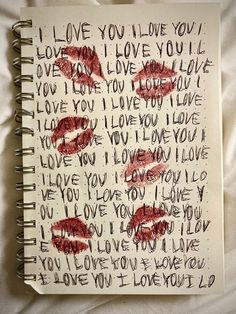 I LOVE YOU I LOVE YOU
LOVE YOU I LOVE YOU I L
OVE YOU I LOVE YOU I LOVE
YOU I LOVE YOU I LOVE
YOU I LOVE YOU I LOVE
I LOVE YOU I LOVE YOU I
LOVE YOU I LOVE YOU I
LOVE YOU I LOVE YOU I
I LOVE YOU I LOVE YOU
LOVE YOU I LOVE YOU I LO
VE YOU I LOVE YOU I
YOU I LOVE YOU I LOVE
LOVE YOU I LOVE YOU I
LOVE YOU I LOVE YOU
YOU I LOVE YOU I LOVE
YOU I LOVE YOU I LOVE YOU
I LOVE YOU I LOVE YOU I LO